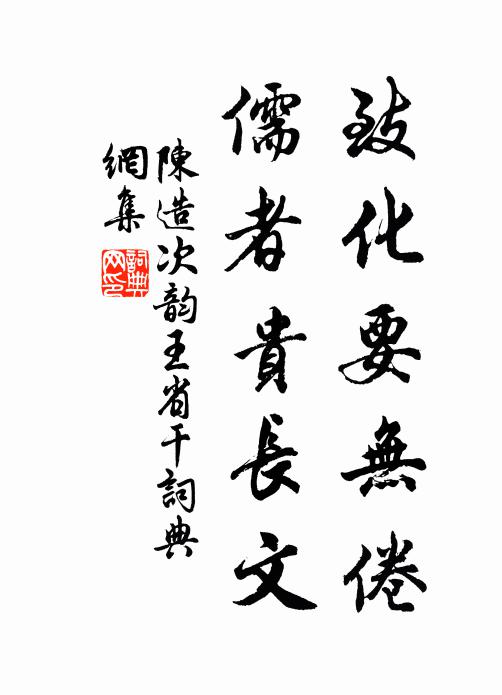 致化要無倦
儒者貴長文
陳造次韵王省干詞典
網集
詞典
网印